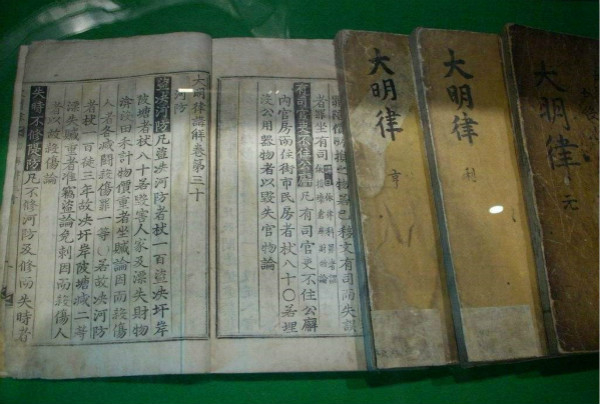 大明律 元
大明律 利
大明律
移文有司而失誤
者罪坐有司
有司官吏不住公廨 凡有司官吏不住公廨
內官房而住街市民房者杖八十○若埋
沒公用器物者以毀失官物論
大明律講解卷第三十
河防
盜決河防 凡盜決河防者杖一百盜決圩岸
陂塘者杖八十若毀害人家及漂失財物
渰沒田禾計物價重者坐贓論因而殺傷
人者各減鬪殺傷罪一等○若故決河防
者杖一百徒三年故決圩岸陂塘減二等
漂失贓重者准竊盜論免刺因而殺傷人
者以故殺傷論
失時不修隄防 凡不修河防及修而失時者